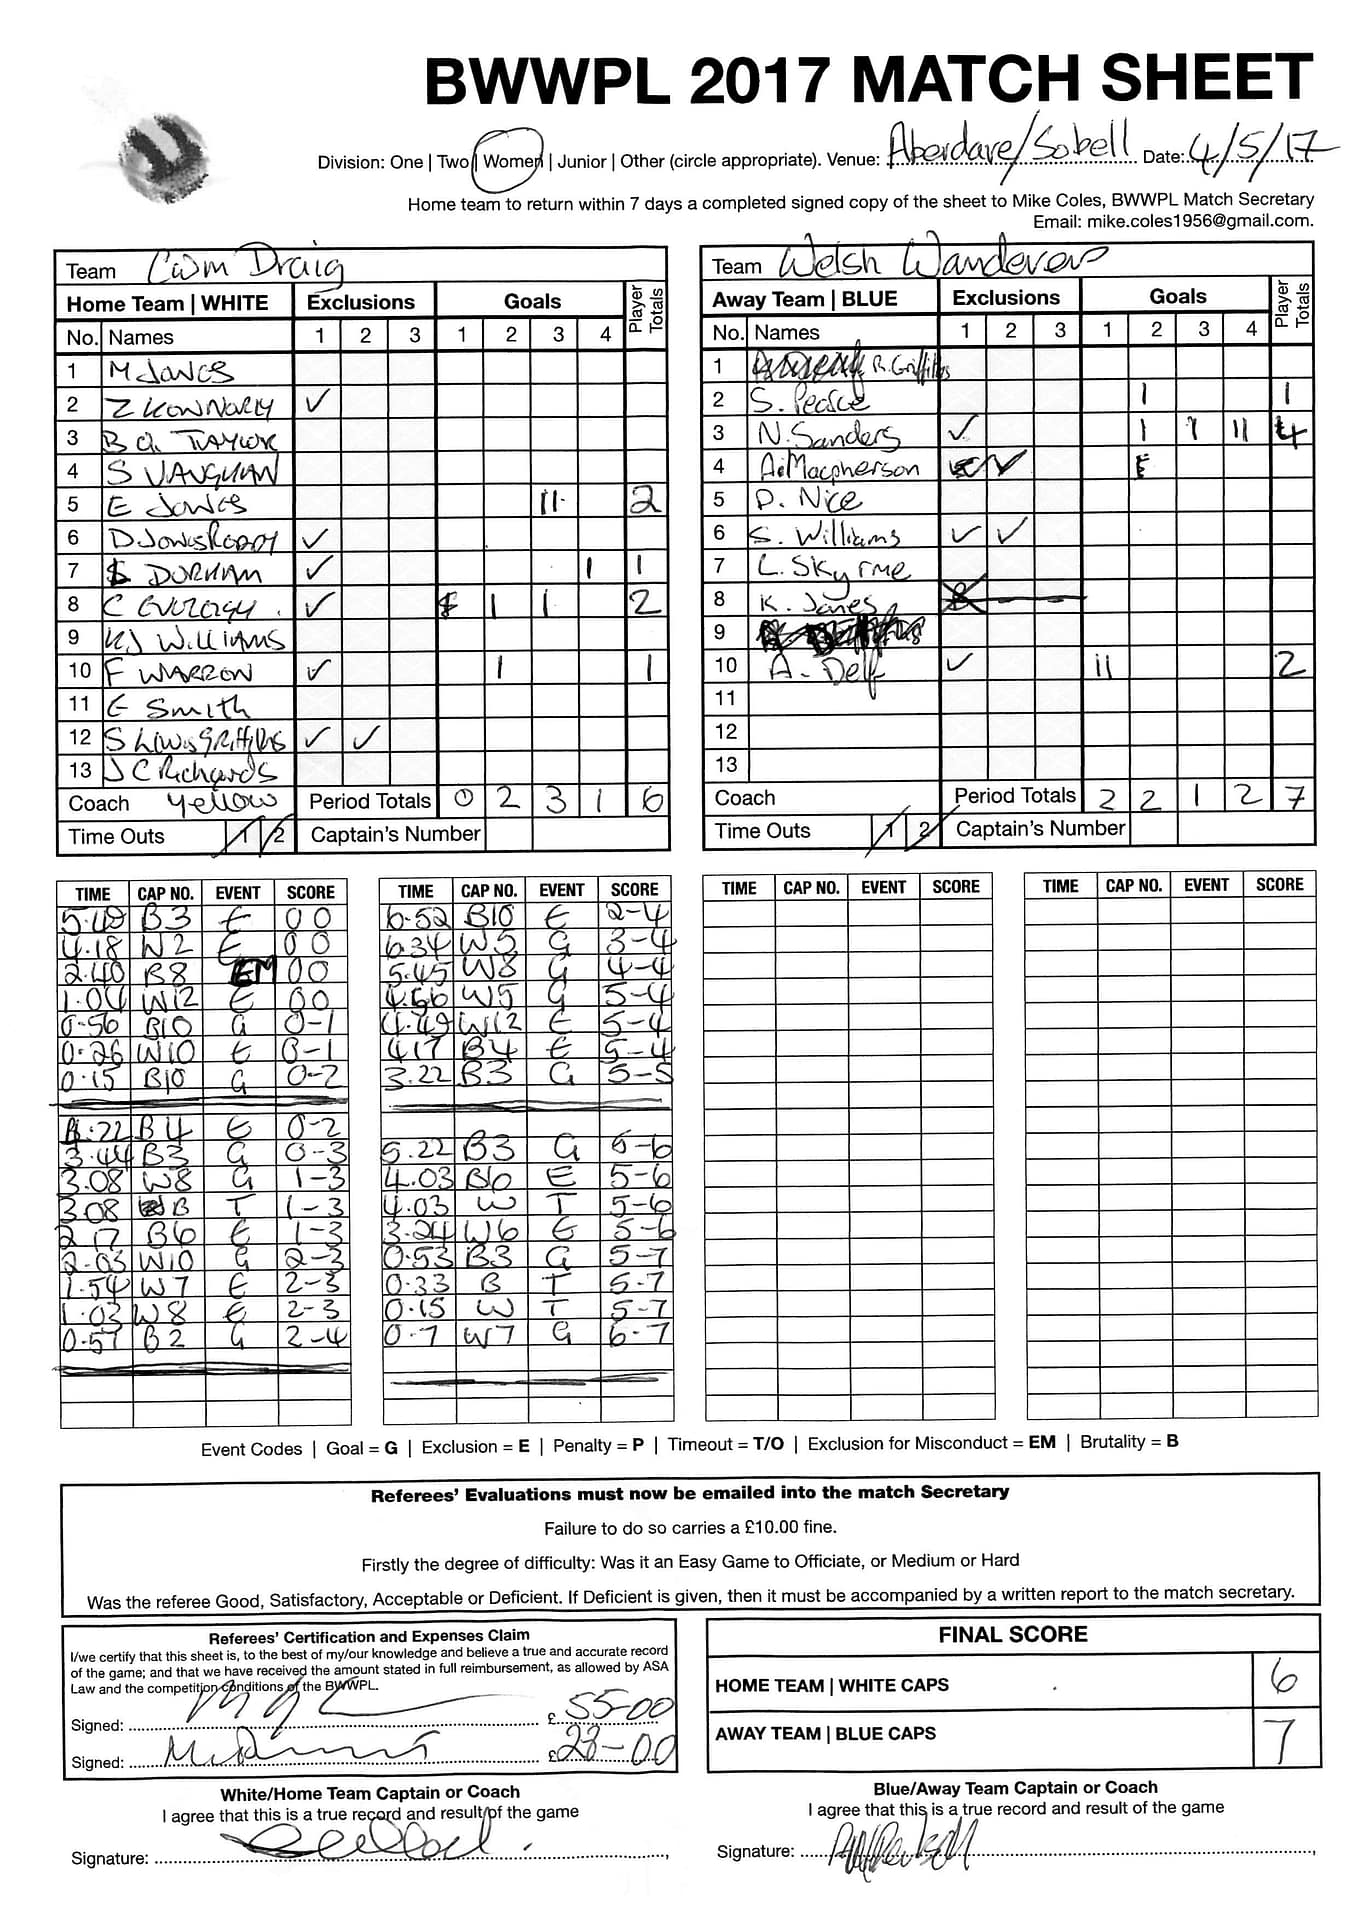 BWWPL 2017 MATCH SHEET
Division: One | Two | Women | Junior | Other (circle appropriate). Venue: Aberdare/Sobell Date: 4/5/17
Home team to return within 7 days a completed signed copy of the sheet to Mike Coles, BWWPL Match Secretary
Email: mike.coles1956@gmail.com.
Team Cwm Draig
Home Team | WHITE Exclusions Goals Player Totals
No. Names 1 2 3 1 2 3 4
1 M Jones
2 Z Konnorly ✓
3 B O. Taylor
4 S Vaughan
5 E Jones 11 2
6 D Jones ✓
7 Durham ✓ 1 1
8 C ✓ 1 1 2
9 KJ Williams
10 F Warron ✓ 1 1
11 E Smith
12 S Lewis Griffiths ✓ ✓
13 J C Richards
Coach Yellow Period Totals 0 2 3 1 6
Time Outs 1 2 Captain's Number
Team Welsh Wanderers
Away Team | BLUE Exclusions Goals Player Totals
No. Names 1 2 3 1 2 3 4
1 R. Griffiths
2 S. Pearce 1 1
3 N. Sanders ✓ 1 1 11 4
4 A. Macpherson ✓
5 D. Nice
6 S. Williams ✓ ✓
7 L. Skyrme
8 K. Jones
9
10 A. Delf ✓ 11 2
11
12
13
Coach Period Totals 2 2 1 2 7
Time Outs 1 2 Captain's Number
TIME CAP NO. EVENT SCORE
5.49 B3 E 0 0
4.18 W2 E 0 0
2.40 B8 EM 0 0
1.04 W12 E 0 0
0.56 B10 G 0-1
0.26 W10 E 0-1
0.15 B10 G 0-2
.22 B4 E 0-2
3.44 B3 G 0-3
3.08 W8 G 1-3
3.08 B T 1-3
2.17 B6 E 1-3
2.03 W10 G 2-3
1.54 W7 E 2-3
1.03 W8 E 2-3
0.57 B2 G 2-4
TIME CAP NO. EVENT SCORE
6.52 B10 E 2-4
6.34 W5 G 3-4
5.45 W8 G 4-4
4.56 W5 G 5-4
4.49 W12 E 5-4
4.17 B4 E 5-4
3.22 B3 G 5-5
5.22 B3 G 5-6
4.03 B6 E 5-6
4.03 W T 5-6
3.24 W6 E 5-6
0.53 B3 G 5-7
0.33 B T 5-7
0.15 W T 5-7
0.7 W7 G 6-7
TIME CAP NO. EVENT SCORE
TIME CAP NO. EVENT SCORE
Event Codes | Goal = G | Exclusion = E | Penalty = P | Timeout = T/O | Exclusion for Misconduct = EM | Brutality = B
Referees' Evaluations must now be emailed into the match Secretary
Failure to do so carries a £10.00 fine.
Firstly the degree of difficulty: Was it an Easy Game to Officiate, or Medium or Hard
Was the referee Good, Satisfactory, Acceptable or Deficient. If Deficient is given, then it must be accompanied by a written report to the match secretary.
Referees' Certification and Expenses Claim
I/we certify that this sheet is, to the best of my/our knowledge and believe a true and accurate record
of the game; and that we have received the amount stated in full reimbursement, as allowed by ASA
Law and the competition conditions of the BWWPL.
Signed: £ 55-00
Signed: £ 23-00
FINAL SCORE
HOME TEAM | WHITE CAPS 6
AWAY TEAM | BLUE CAPS 7
White/Home Team Captain or Coach
I agree that this is a true record and result of the game
Signature:
Blue/Away Team Captain or Coach
I agree that this is a true record and result of the game
Signature: